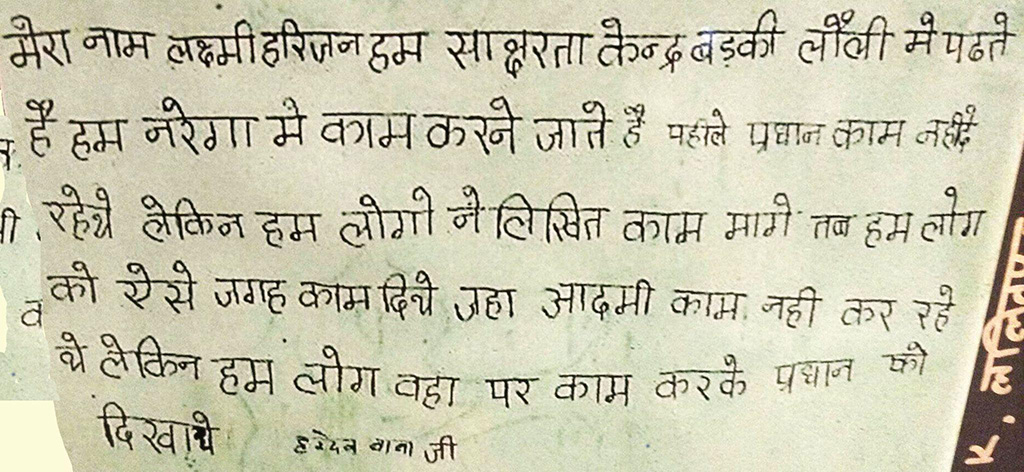 मेरा नाम लक्ष्मी हरिजन हम साक्षरता केन्द्र बड़की लौली मे पढते
है हम नरेगा मे काम करने जाते है पहीले प्रधान काम नही दे
रहेथे लेकिन हम लोगो ने लिखित काम मागे तब हम लोग
को ऐसे जगह काम दिये जहा आदमी काम नही कर रहे
थे लेकिन हम लोग वहा पर काम करके प्रधान को
दिखाये